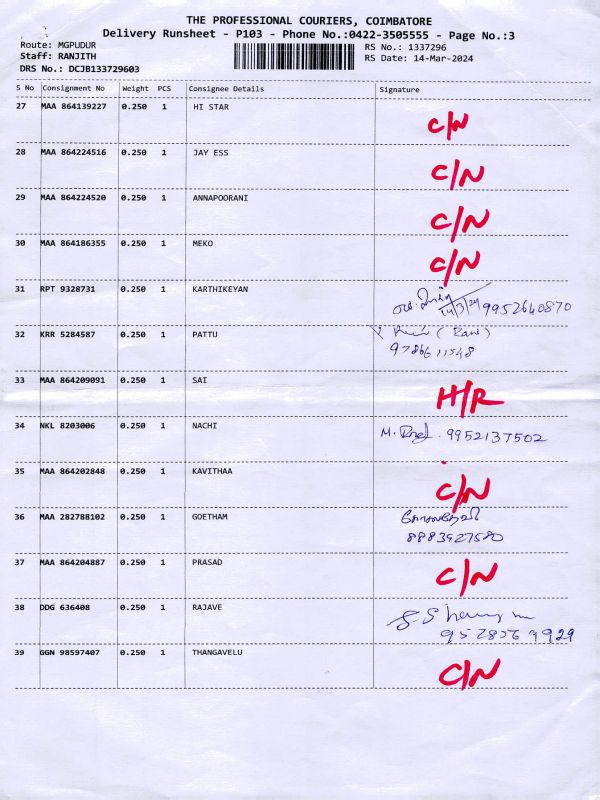 THE PROFESSIONAL COURIERS, COIMBATORE
Delivery Runsheet - P103 - Phone No.:0422-3505555 - Page No.:3
Route: MGPUDUR RS No.: 1337296
Staff: RANJITH RS Date: 14-Mar-2024
DRS No.: DCJB133729603
S No Consignment No Weight PCS Consignee Details Signature
27 MAA 864139227 0.250 1 HI STAR
C/N
28 MAA 864224516 0.250 1 JAY ESS
C/N
29 MAA 864224520 0.250 1 ANNAPOORANI
C/N
30 MAA 864186355 0.250 1 MEKO
C/N
31 RPT 9328731 0.250 1 KARTHIKEYAN
14/3/24 9952640870
32 KRR 5284587 0.250 1 PATTU
(Rani)
9786611548
33 MAA 864209091 0.250 1 SAI
H/R
34 NKL 8203006 0.250 1 NACHI
M. 9952137502
35 MAA 864202848 0.250 1 KAVITHAA
C/N
36 MAA 282788102 0.250 1 GOETHAM
8883927580
37 MAA 864204887 0.250 1 PRASAD
C/N
38 DDG 636408 0.250 1 RAJAVE
39 GGN 98597407 0.250 1 THANGAVELU
C/N